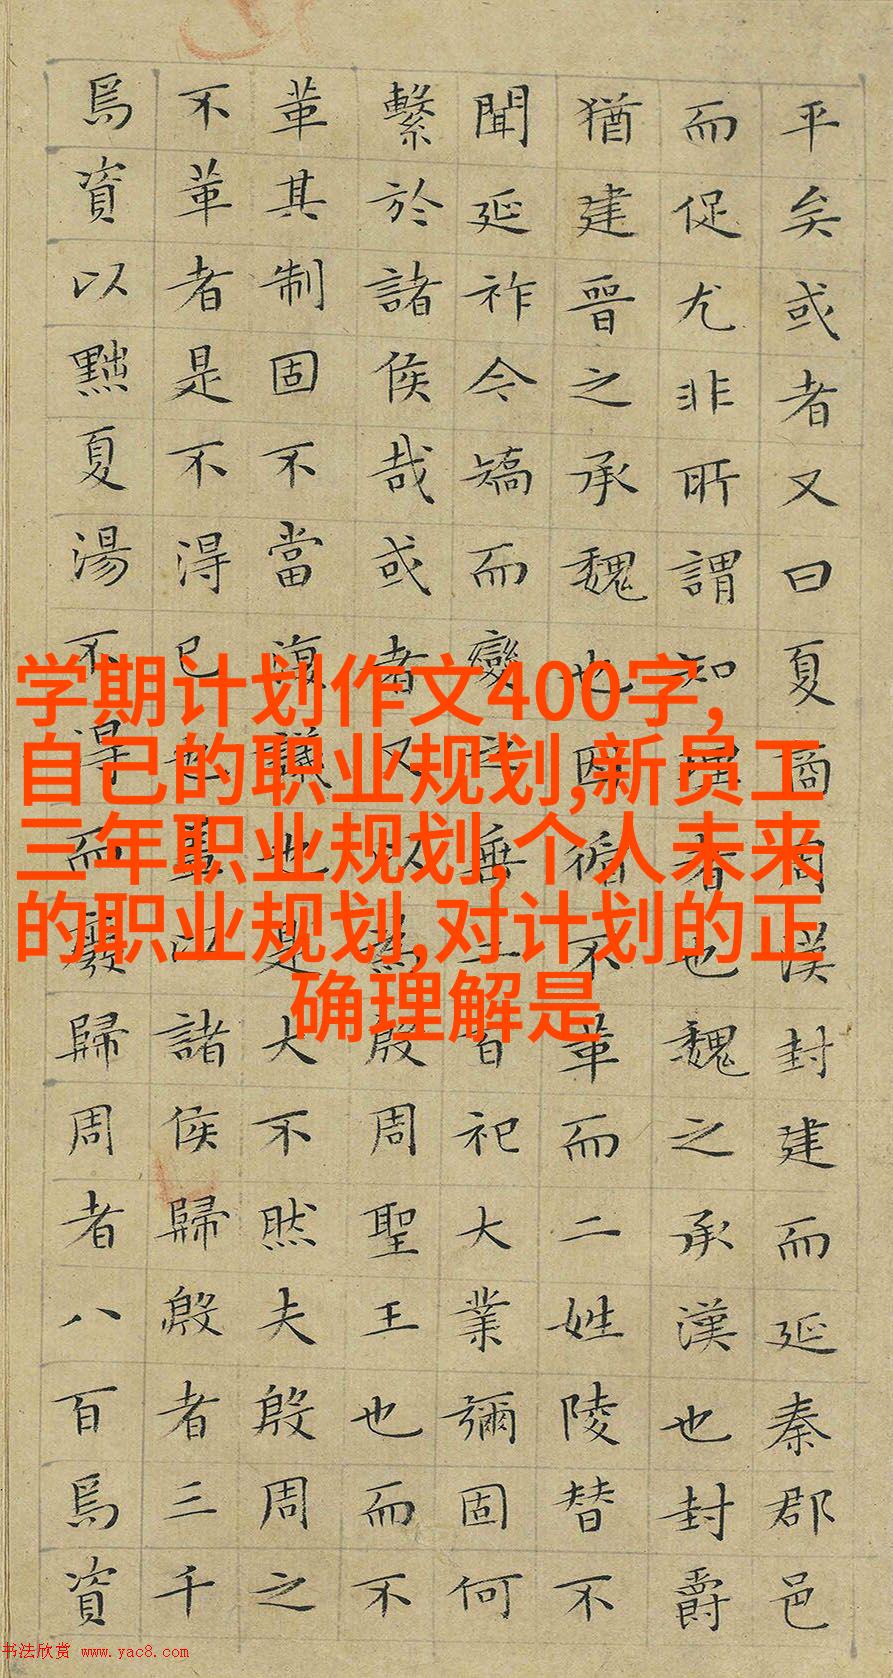 平矣或者又曰夏商周漢封建而延秦郡邑
而促尤非所謂知理者也魏之承漢也封爵
猶建晉之承魏也因循不革而二姓陵替不
聞延祚今矯而變之垂二百祀大業彌固何
繫於諸侯哉或者又以為殷周聖王也而不
革其制固不當復議也是大不然夫殷周之
不革者是不得已也蓋以諸侯歸殷者三千
焉資以黜夏湯不得而廢歸周者八百焉資
学期计划作文400字,
自己的职业规划,新员工
三年职业规划,个人未来
的职业规划,对计划的正
确理解是
书法欣赏 www.yac8.com